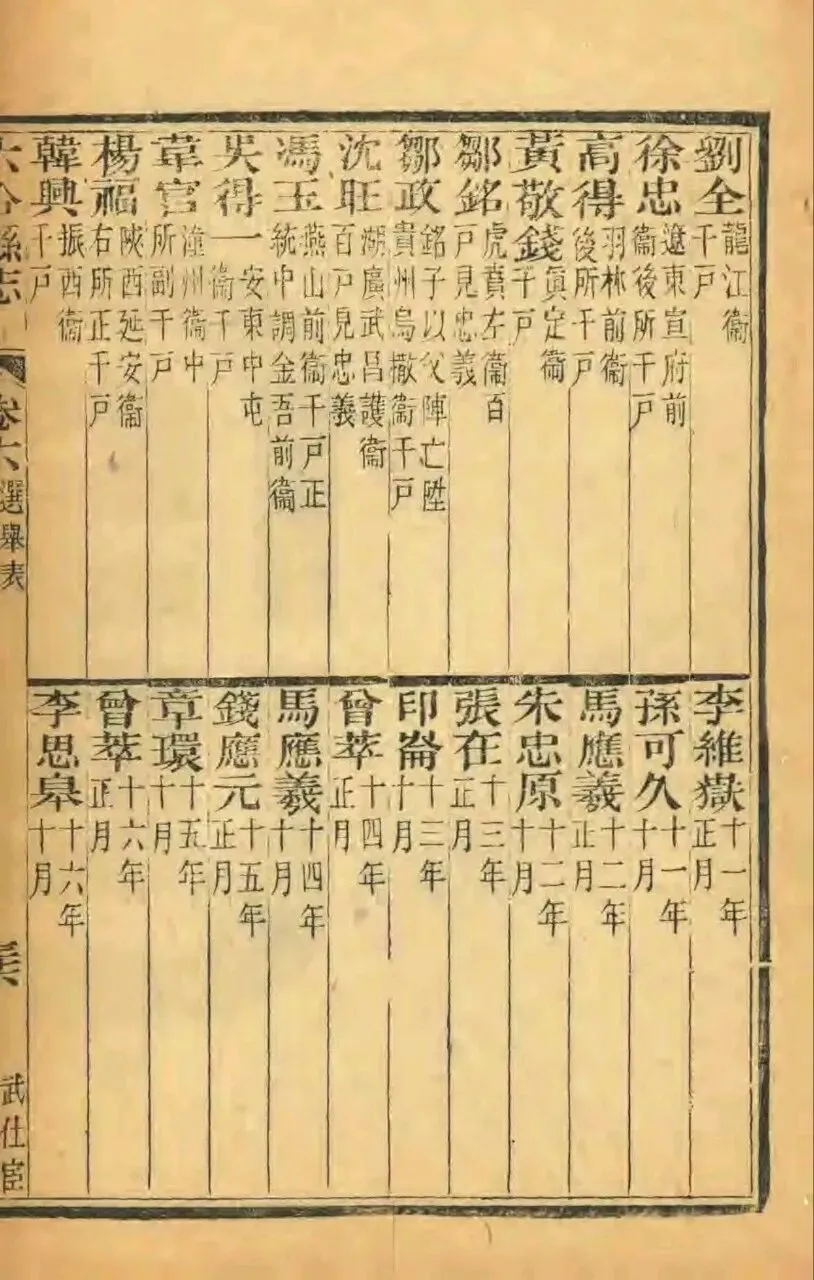 劉全 龍江衞千戸
徐忠 遼東宣府前衞後所千戸
高得 羽林前衞後所千戸
黃敬錢 眞定衞千戸
鄒銘 虎賁左衞百戸見忠義
鄒政 銘子以父陣亡陞貴州烏撒衞千戸
沈旺 湖廣武昌護衞百戸見忠義
馮玉 燕山前衞千戸正統中調金吾前衞
吳得一 安東中屯衞千戸
韋官 潼州衞中所副千戸
楊福 陝西延安衞右所正千戸
韓興 振西衞千戸
李維嶽 十一年正月
孫可久 十一年十月
馬應義 十二年正月
朱忠原 十二年十月
張在 十三年正月
印崙 十三年十月
曾萃 十四年正月
馬應義 十四年十月
錢應元 十五年正月
章環 十五年十月
曾萃 十六年正月
李思皋 十六年十月
六合縣志 卷六 選舉表 武仕宦